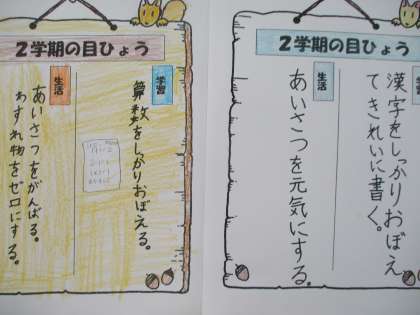 2学期の目ひょう
学習
算数をしっかりおぼえる。
生活
あいさつをがんばる。
わすれ物をゼロにする。
2学期の目ひょう
漢字をしっかりおぼえ
てきれいに書く。
生活
あいさつを元気にする。